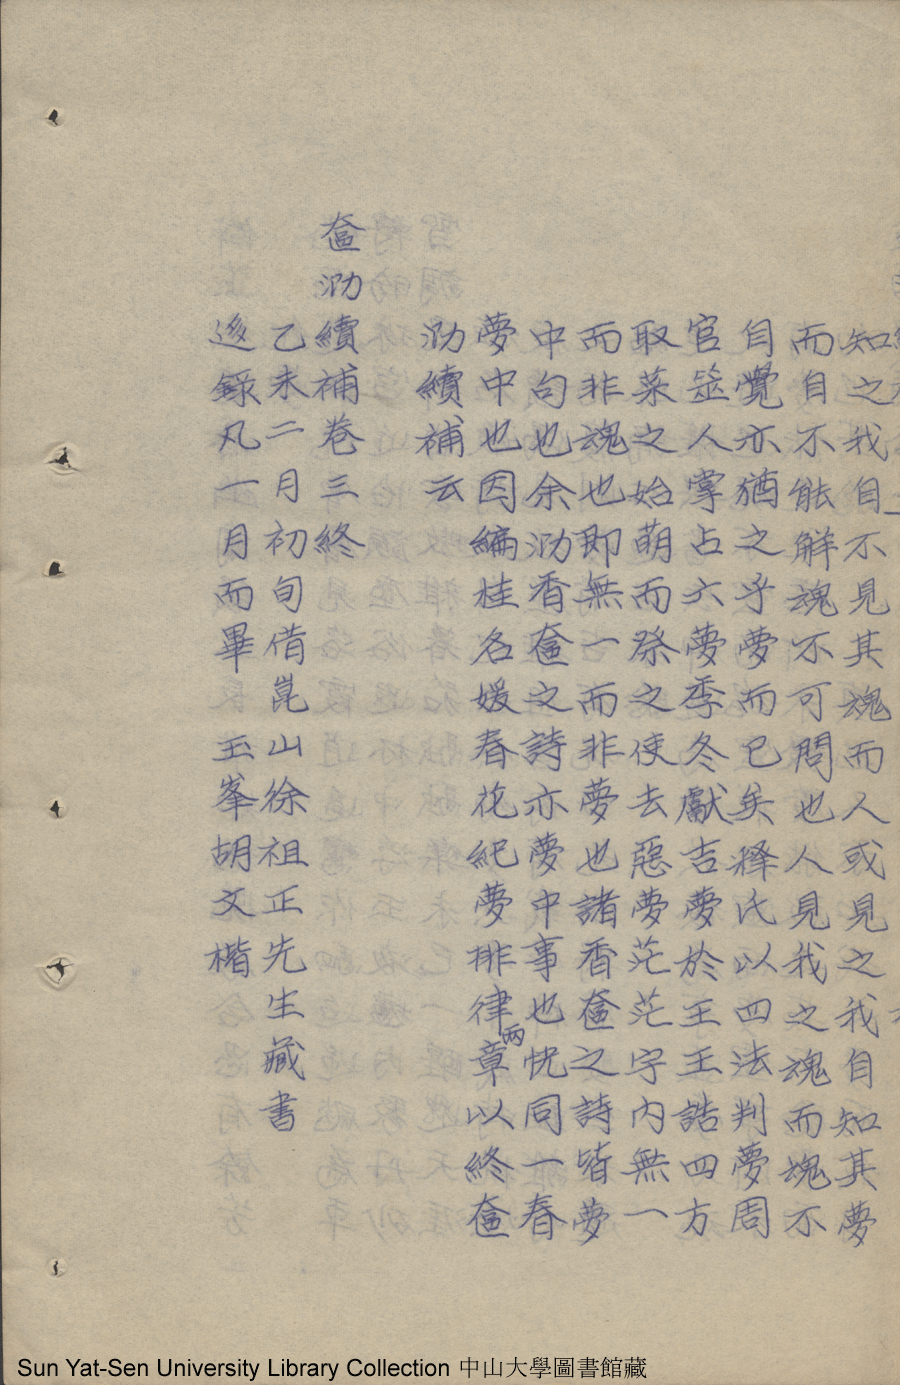 知之我自不見其魂而人或見之我自知其夢
而自不能解魂不可問也人見我之魂而魂不
自覺亦猶之乎夢而已矣釋氏以四法判夢周
官筮人掌占六夢季冬獻吉夢於王王誥四方
取菜之始萌而祭之使去惡夢茫茫宇內無一
而非魂也即無一而非夢也諸香奩之詩皆夢
中句也余泐香奩之詩亦夢中事也恍同一春
夢中也因編桂名媛春花紀夢排律兩章以終奩
泐續補云
奩泐續補卷三終
乙未二月初旬借崑山徐祖正先生藏書
逡錄凡一月而畢玉峯胡文楷
Sun Yat-Sen University Library Collection 中山大學圖書館藏